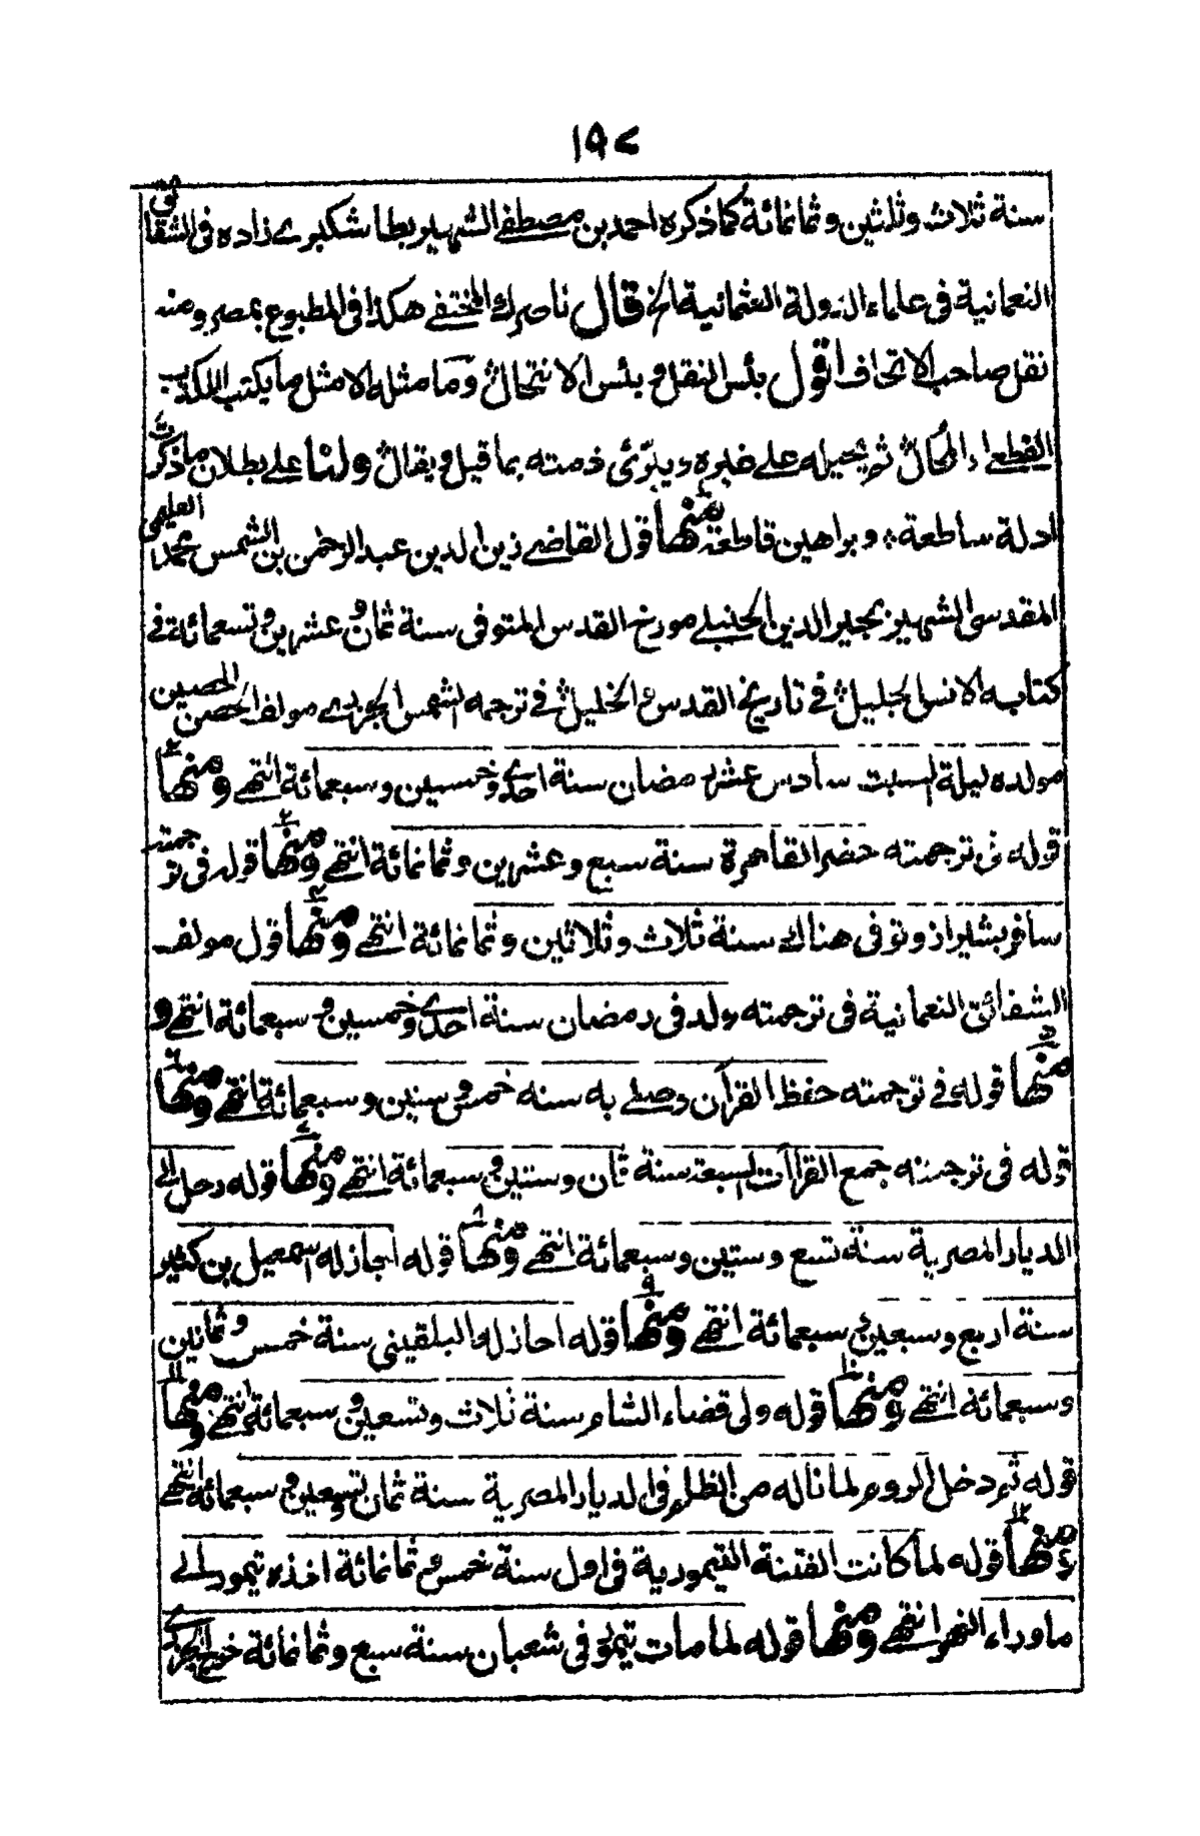 ١٥٧
سنة ثلاث وثلثين وثمانمائة كما ذكره احمد بن مصطفے الشهير بطاشكبرے زاده فى الشقائق
النعمانية فى علماء الدولة العثمانية الخ قال ناصرك المختفے هكذا فى المطبوع بمصر ومنه
نقل صاحب الاتحاف اقول بئس النقل وبئس الانتحال وما مثله الا مثل ما يكتب الكذب
القطعے والمحال ثم يحيله علے غيره ويبرّئ ذمته بما قيل ويقال ولنا علے بطلان ما ذكرت
ادلة ساطعة وبراهين قاطعة منها قول القاضے زين الدين عبد الرحمن بن الشمس محمد العليمى
المقدسى الشهير بمجير الدين الحنبلے مورخ القدس المتوفى سنة ثمان وعشرين وتسعمائة فے
كتابه الانس الجليل فے تاريخ القدس والخليل فے ترجمه الشمس الجزرے مولف الحصن الحصين
مولده ليلة السبت سادس عشر رمضان سنة احدے وخمسين وسبعمائة انتهے ومنها ٢
قوله فى ترجمته حضر القاهرة سنة سبع وعشرين وثمانمائة انتهے ومنها ٣ قوله فى ترجمته
سافر بشيراز وتوفى هناك سنة ثلاث وثلاثين وثمانمائة انتهے ومنها ٤ قول مولف
الشقائق النعمانية فى ترجمته ولد فى رمضان سنة احدے وخمسين وسبعمائة انتهے و
منها ٥ قوله فے ترجمته حفظ القرآن وصلے به سنه خمس وستين وسبعمائة انتهے ومنها ٦
قوله فى ترجمته جمع القراآت السبعة سنة ثمان وستين وسبعمائة انتهے ومنها ٧ قوله دخل الے
الديار المصرية سنة تسع وستين وسبعمائة انتهے ومنها ٨ قوله اجاز له اسمعيل بن كثير
سنة اربع وسبعين وسبعمائة انتهے ومنها ٩ قوله اجاز له البلقينى سنة خمس وثمانين
وسبعمائة انتهے ومنها ١٠ قوله ولى قضاء الشام سنة ثلاث وتسعين وسبعمائة انتهے ومنها ١١
قوله ثم دخل الروم لما ناله من الظلم فى الديار المصرية سنة ثمان وتسعين وسبعمائة انتهے
ومنها ١٢ قوله لما كانت الفتنة التيمورية فى اول سنة خمس وثمانمائة اخذه تيمور الے
ماوراء النهر انتهے ومنها قوله لما مات تيمور فى شعبان سنة سبع وثمانمائة خرج الجزرے